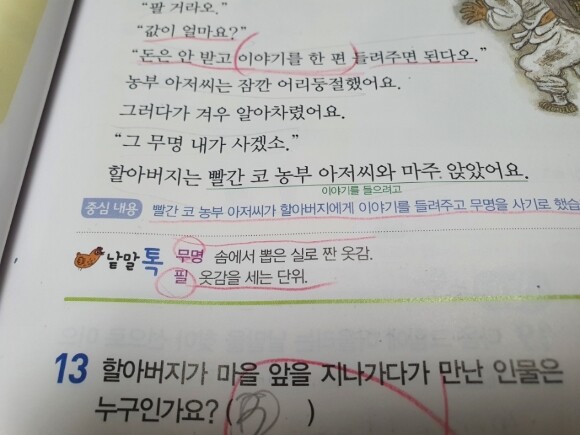 “팔 거라오.”
“값이 얼마요?”
“돈은 안 받고 이야기를 한 편 들려주면 된다오.”
농부 아저씨는 잠깐 어리둥절했어요.
그러다가 겨우 알아차렸어요.
“그 무명 내가 사겠소.”
할아버지는 빨간 코 농부 아저씨와 마주 앉았어요.
이야기를 들으려고
중심 내용 빨간 코 농부 아저씨가 할아버지에게 이야기를 들려주고 무명을 사기로 했습
낱말 톡 무명 솜에서 뽑은 실로 짠 옷감.
필 옷감을 세는 단위.
13 할아버지가 마을 앞을 지나가다가 만난 인물은
누구인가요? ( )